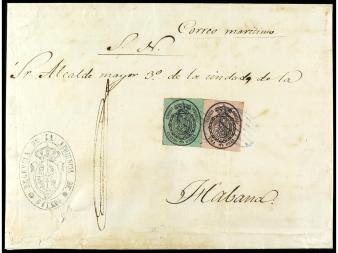 Correo maritimo
S. N.
Sr. Alcalde mayor 3º de la ciudad de la
Habana